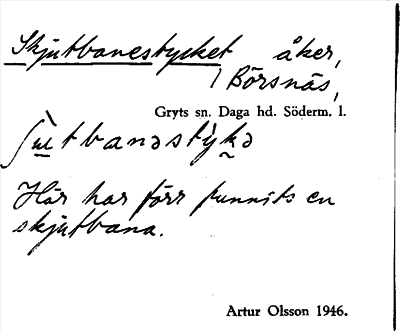 Skjutbanestycket åker,
i Börsnäs,
Gryts sn. Daga hd. Söderm. l.
ʃu̲tbanəstỳk̬ə
Här har förr funnits en
skjutbana.
Artur Olsson 1946.